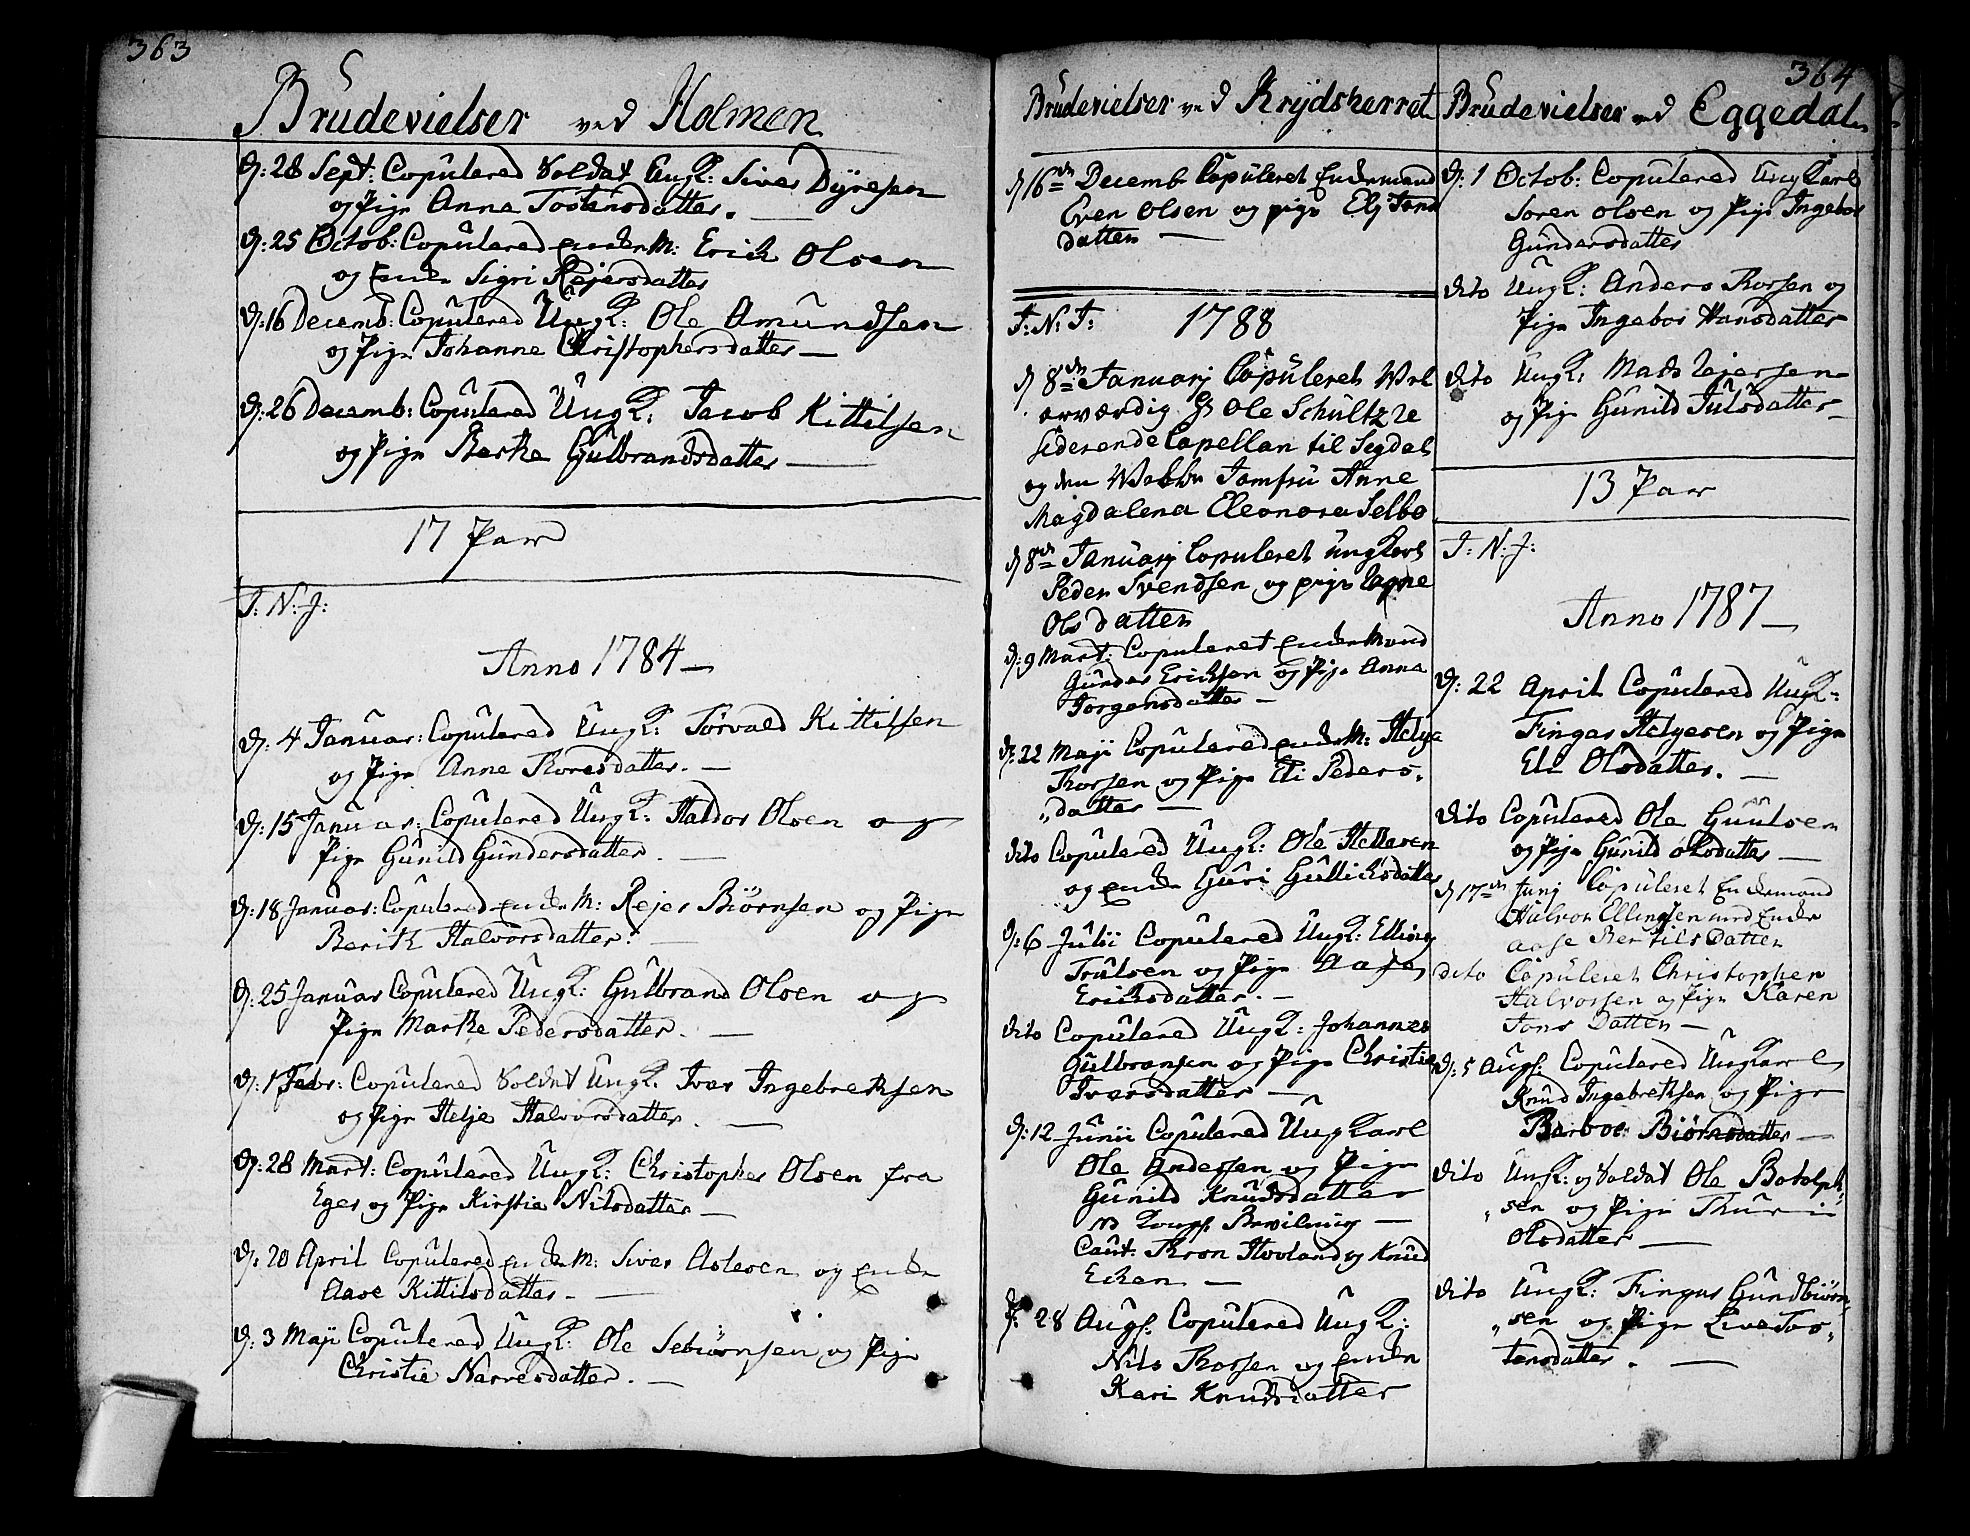 363
Brudevielser ved Holmen
d: 28 Sept: Copulered Soldat Ungk: Siver Dÿresen
og Pige Anne Tostensdatter.
d: 25 Octob: Copulered Enkem: Erich Olsen
og Enke Sigri Rejersdatter
d: 16 Decemb: Copulered Ungk: Ole Amundsen
og Pige Johanne Christophersdatter
d: 26 Decemb: Copulered Ungk: Jacob Kittilsen
og Pige Berthe Gulbrandsdatter
17 Par
I: N: J:
Anno 1784
d: 4 Januar: Copulered Ungk: Torvald Kittilsen
og Pige Anne Thoresdatter.
d: 15 Januar: Copulered Ungk: Haldor Olsen og
Pige Gunild Gundersdatter.
d: 18 Januar: Copulered Enkem: Rejer Biörnsen og Pige
Berith Halvorsdatter.
d: 25 Januar Copulered Ungk: Gulbrand Olsen og
Pige Marthe Pedersdatter.
d: 1 Febr: Copulered Soldat Ungk: Iver Ingebrethsen
og Pige Helje Halvorsdatter.
d: 28 Mart: Copulered Ungk: Christopher Olsen fra
Eger og Pige Kirstie Nilsdatter
d: 20 April Copulered Enkem: Siver Aslesen og Enke
Aase Kittilsdatter.
d: 3 Maji Copulered Ungk: Ole Sebiörnsen og Pige
Christie Narvesdatter.
364
Brudevielser ved Krydsherret
d 16de Decemb Copuleret Enkemand
Even Olsen og pige Eli Jons
datter
I: N: J: 1788
d 8de Januarj Copuleret Vel
ærværdig Hr Ole Schultz re
siderende Capellan til Segdal
og den Jomfru Anne
Magdalena Eleonora Selbo
d 8de Januarj Copuleret ungkarl
Peder Svendsen og pige
Olsdatter
d: 9 Mart: Copuleret Enkemand
Gunder Erichsen og Pige Anna
Jorgensdatter
d: 22 Maji Copulered Enkem: Helge
Thorsen og Pige Eli Peders-
datter
dito Copulered Ungk: Ole Hellesen
og Enke Guri Gullichsdatter
d: 6 Julii Copulered Ungk: Elling
Trulsen og Pige Aase
Erichsdatter.
dito Copulered Ungk: Johannes
Gulbransen og Pige Christie
Iversdatter
d: 12 Junii Copulered Ungkarl
Ole Andersen og Pige
Gunild Knudsdatter
Bevilning
Caut: Thron Hovland og Knud
Echen
d: 28 Augs: Copulered Ungk:
Nils Thorsen og Enken
Kari Knudsdatter
Brudevielser ved Eggedal
d: 1 Octob: Copulered Ungkarl
Soren Olsen og Pige Ingebor
Gundersdatter
dito Ungk: Anders Thorsen og
Pige Ingebor Hansdatter
dito Ungk: Mads Rejersen
og Pige Gunild Julsdatter
13 Par
I: N: J:
Anno 1787
d: 22 April Copulered Ungk:
Fingar Helgesen og Pige
Eli Olsdatter.
dito Copulered Ole Guulsen
og Pige Gunild Olsdatter
d 17de Junj Copuleret Enkemand
Halvor Ellingsen med Enke
Aase Bertils Datter
dito Copuleret Christopher
Halvorsen og Pige Karen
Jons Datter
d: 5 Augs: Copulered Ungkarl
Knud Ingebrethsen og Pige
Barboe Biörnsdatter
dito Ungk: og Soldat Ole Botolph-
sen og Pige Thuri
Olsdatter
dito Ungk: Fingar Gundbiörn-
sen og Pige Live Tos-
tensdatter.